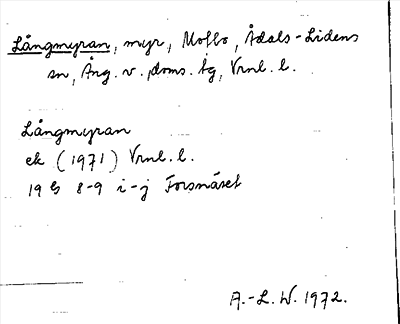 Långmyran, myr, Moflo, Ådals-Lidens
sn, Ång. v. doms. tg, Vrnl. l.
Långmyran
ek (1971) Vrnl. l.
19 G 8-9 i-j Forsnäset
A.-L. W. 1972.